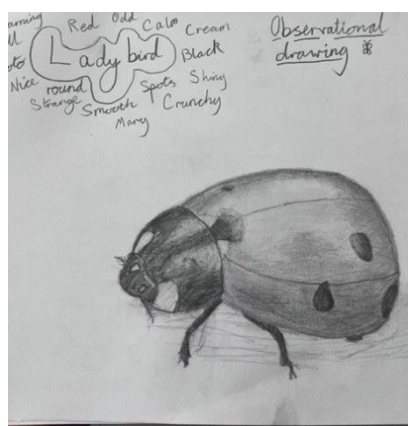 Red Odd Calm Cream
Ladybird
Black
Nice round Spots Shiny
Strange Smooth Crunchy
Many
Observational
drawing